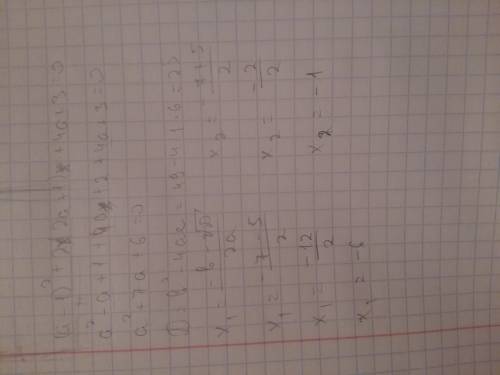 a² - a + 1 + 4a + 2 + 4a + 3 = 0
a² + 7a + 6 = 0
D = b² - 4ac = 49 - 4·1·6 = 25
x₁ = -b - √D / 2a
x₂ = -7 + 5 / 2
x₁ = -7 - 5 / 2
x₂ = -2 / 2
x₁ = -12 / 2
x₂ = -1
x₁ = -6